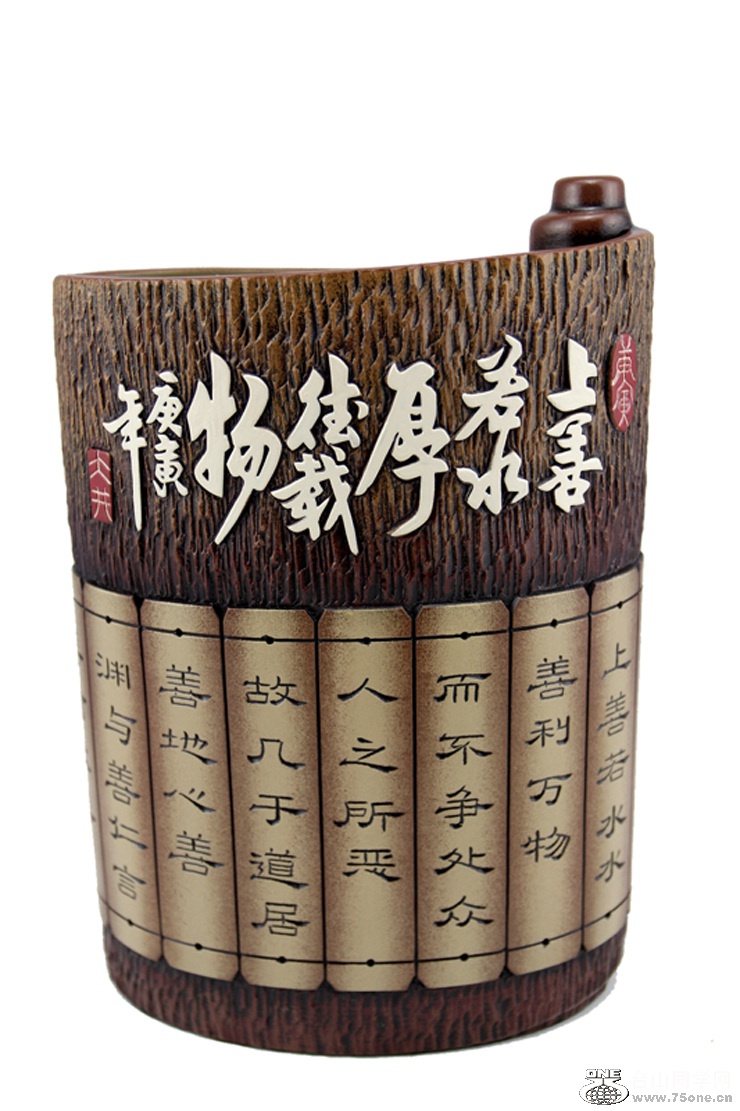 上善
若水
厚
德载
物
庚寅
年
上善若水水
善利万物
而不争处众
人之所恶
故几于道居
善地心善
渊与善仁言
ONE
www.75one.cn